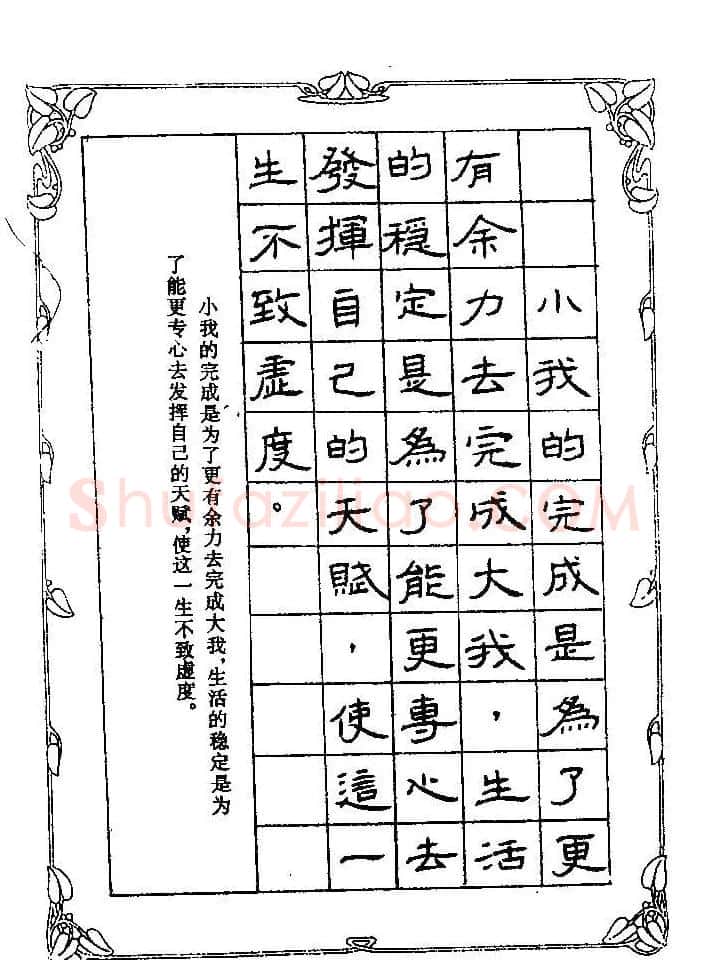 小我的完成是為了更
有余力去完成大我，生活
的穩定是為了能更專心去
發揮自己的天賦，使這一
生不致虛度。
小我的完成是为了更有余力去完成大我，生活的稳定是为
了能更专心去发挥自己的天赋，使这一生不致虚度。
Shufaziliao.COM